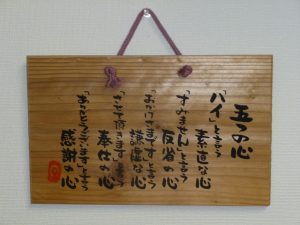 五つの心
「ハイ」という
素直な心
「すみません」という
反省の心
「おかげさまです」という
謙虚な心
「させて頂きます」という
奉仕の心
「ありがとうございます」という
感謝の心